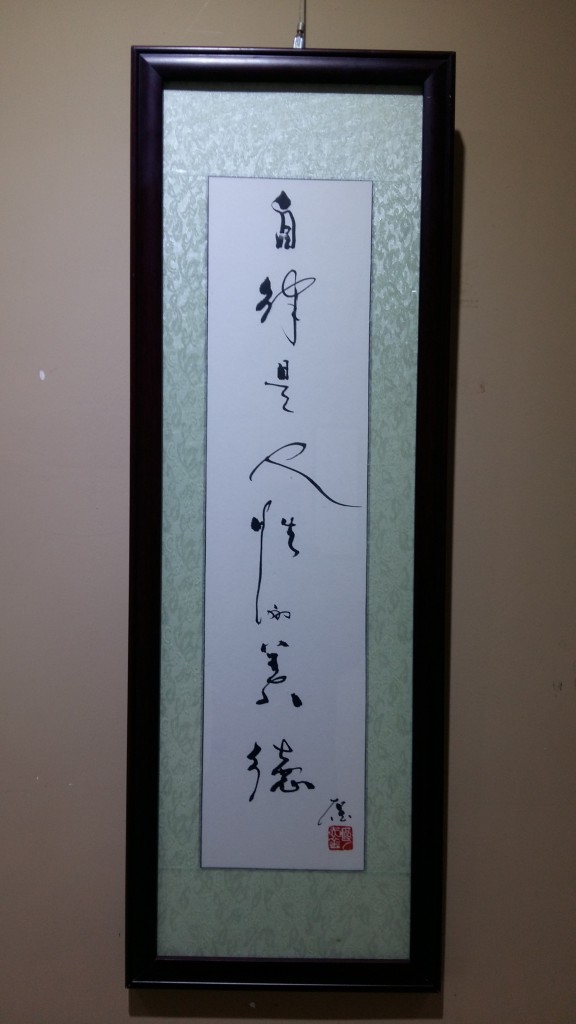 自律是人性的美德